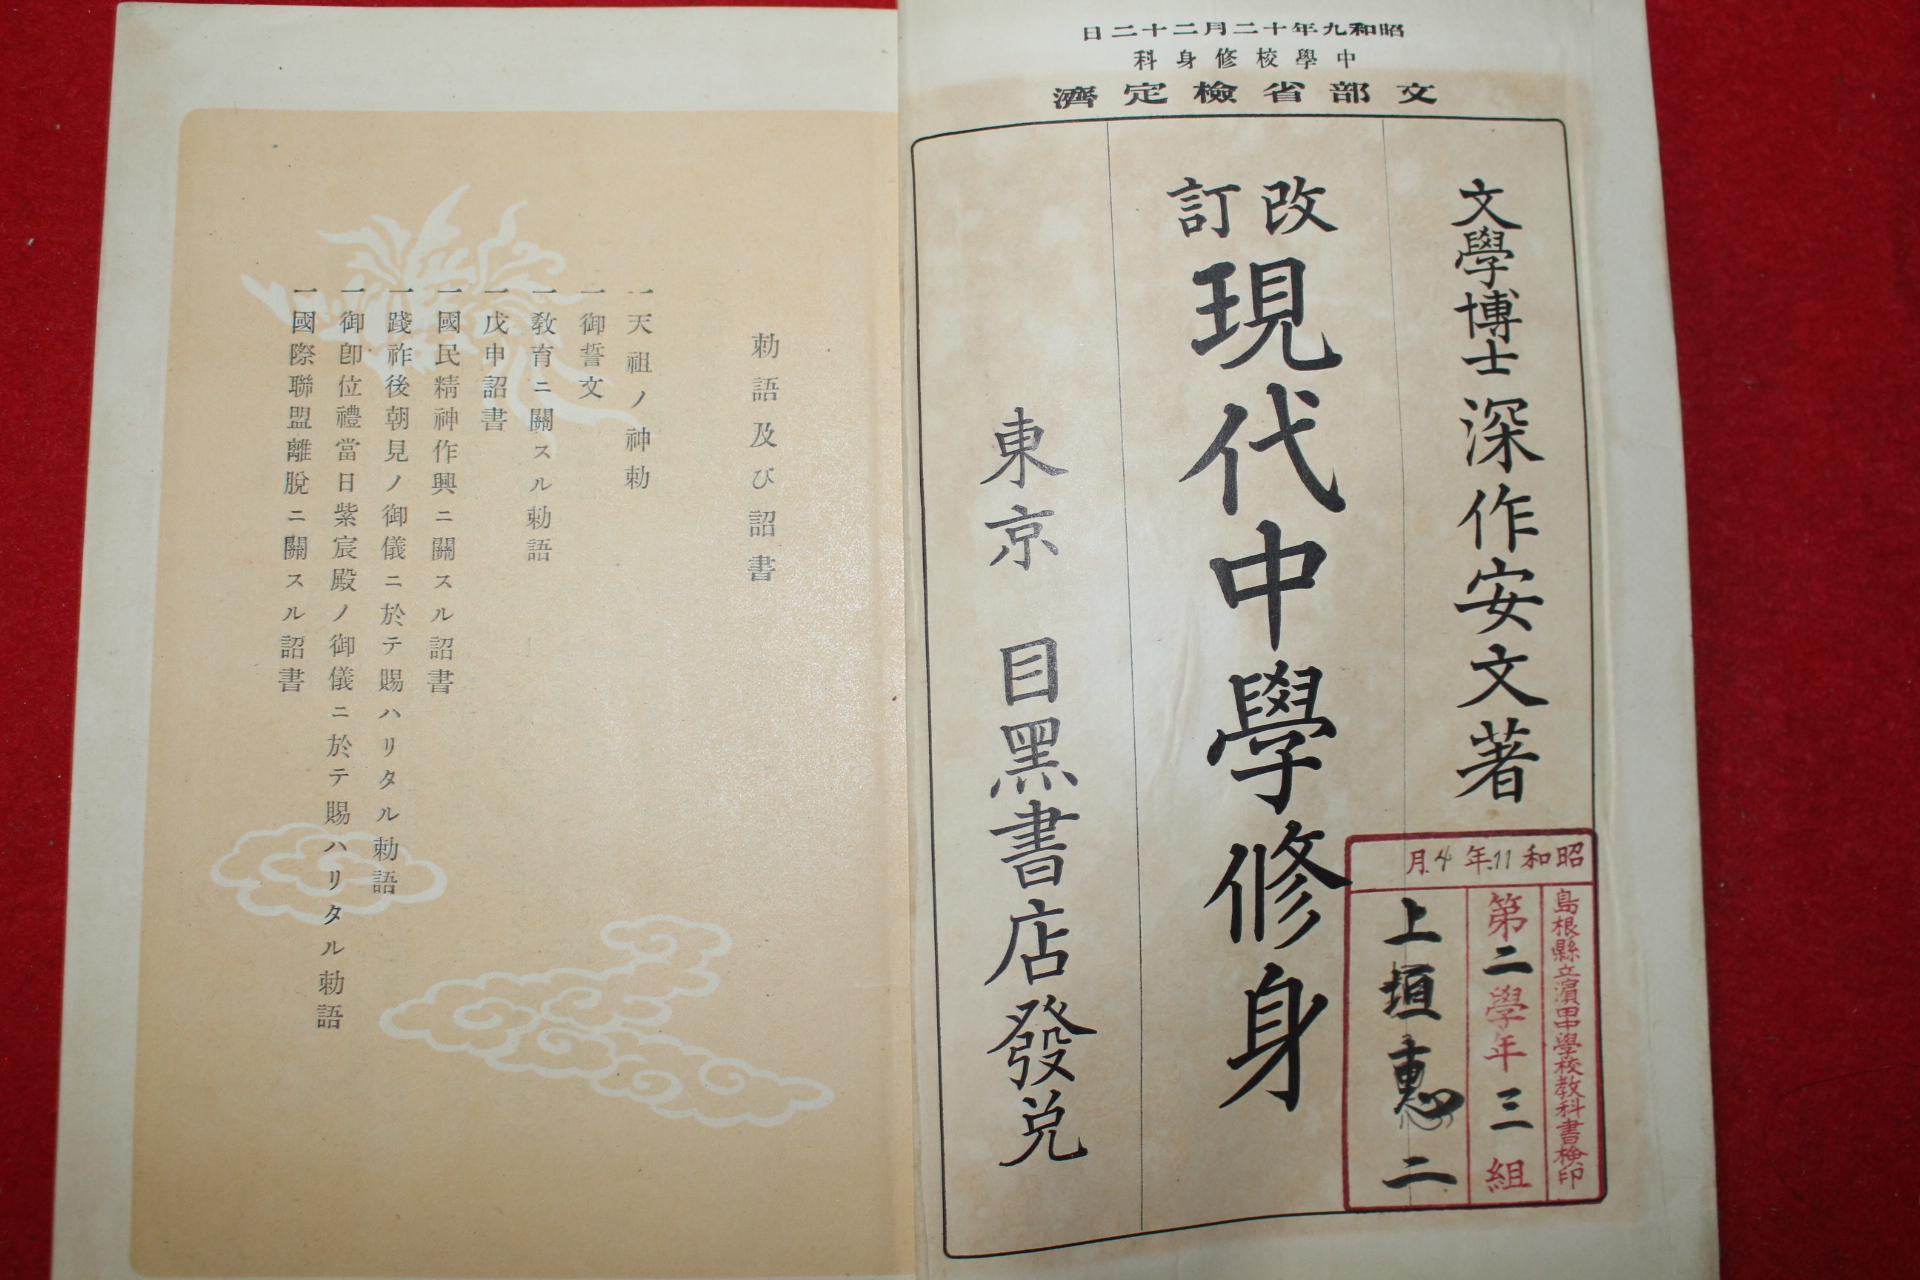 昭和九年十二月二十二日
中學校修身科
文部省檢定濟
文學博士 深作安文著
改訂 現代中學修身
東京 目黑書店發兌
昭和11年4月
島根縣立濱田中學校教科書檢印
第二學年三組
上垣惠二
勅語及び詔書
一天祖ノ神勅
一御誓文
一敎育ニ關スル勅語
一戊申詔書
一國民精神作興ニ關スル詔書
一踐祚後朝見ノ御儀ニ於テ賜ハリタル勅語
一御卽位禮當日紫宸殿ノ御儀ニ於テ賜ハリタル勅語
一國際聯盟離脫ニ關スル詔書